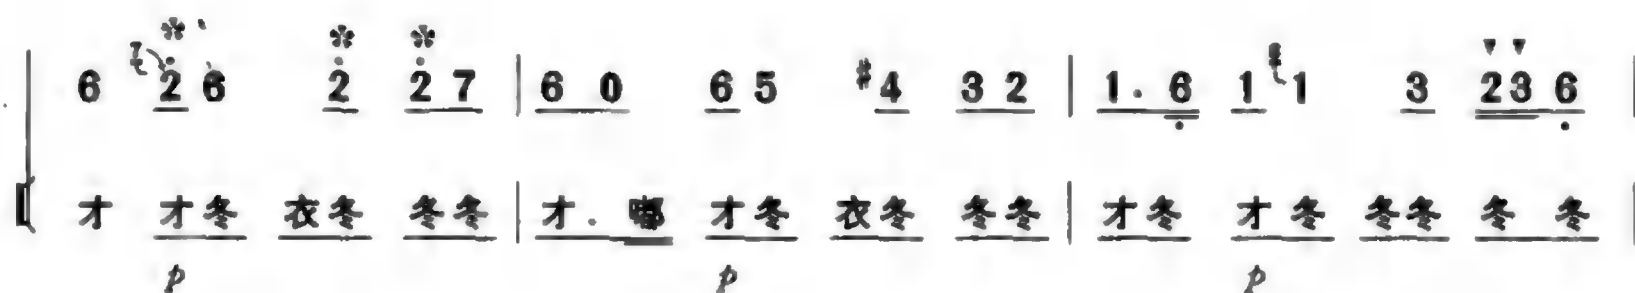 6 2 6 2 2 7 | 6 0 6 5 #4 3 2 | 1. 6 1 1 3 2 3 6 |
才 才冬 衣冬 冬冬 | 才. 嘟 才冬 衣冬 冬冬 | 才冬 才冬 冬冬 冬冬 |
p p p